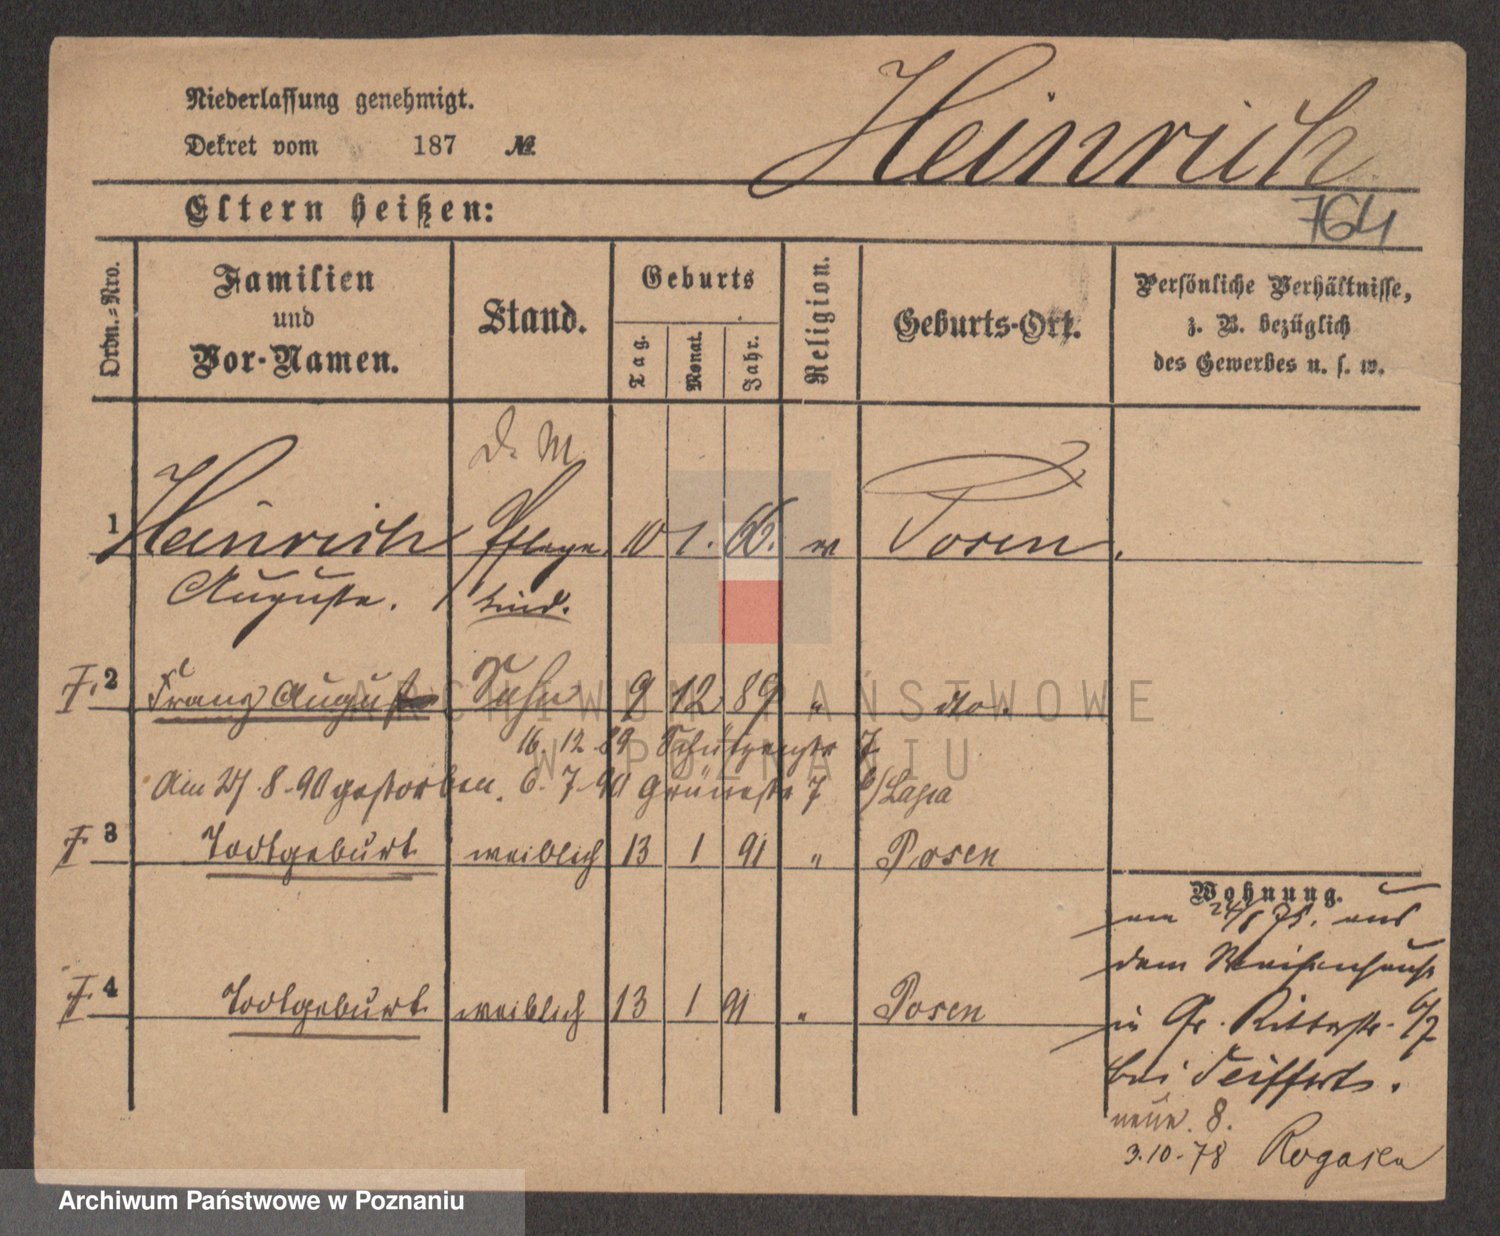 Niederlassung genehmigt.
Dekret vom 187 №
Heinrich
764
Eltern heißen:
Ordn.=Nro.
Familien
und
Vor-Namen.
Stand.
Geburts
Tag.
Monat.
Jahr.
Religion.
Geburts-Ort.
Persönliche Verhältnisse,
z. B. bezüglich
des Gewerbes u. s. w.
D. M
1 Heinrich Pflege 10 1. 66. ev Posen
Auguste. kind.
†. 2 Franz August Sohn 9 12 89 " do.
16. 12 89 Schützenstr 7
Am 27. 8. 90 gestorben. 6. 7. 90 Grünestr 7 b/
†. 3 Todtgeburt weiblich 13 1 91 " Posen
†. 4 Todtgeburt weiblich 13 1 91 " Posen
Wohnung.
am 24/ 75. aus
dem Waisenhause
in Gr. Ritterstr. 6/7
bei Seifferts.
neue. 8.
3.10.78 Rogasen
ARCHIWUM PAŃSTWOWE
W POZNANIU
Archiwum Państwowe w Poznaniu